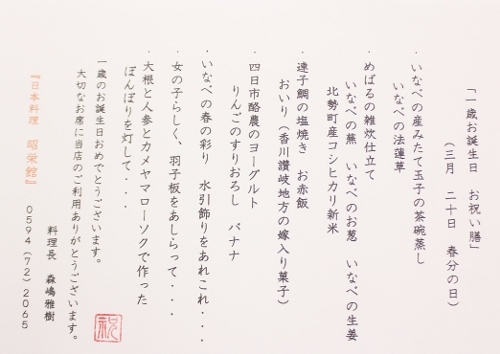 「一歳お誕生日 お祝い膳」
(三月 二十日 春分の日)
・いなべの産みたて玉子の茶碗蒸し
いなべの法蓮草
・めばるの雑炊仕立て
いなべの蕪 いなべのお葱 いなべの生姜
北勢町産コシヒカリ新米
・連子鯛の塩焼き お赤飯
おいり(香川讃岐地方の嫁入り菓子)
・四日市酪農のヨーグルト
りんごのすりおろし バナナ
・いなべの春の彩り 水引飾りをあれこれ・・・
・女の子らしく、羽子板をあしらって・・・
・大根と人参とカメヤマローソクで作った
ぼんぼりを灯して・・・
一歳のお誕生日おめでとうございます。
大切なお席に当店のご利用ありがとうございます。
料理長 森嶋雅樹
『日本料理 昭栄館』 0594(72)2065
祝